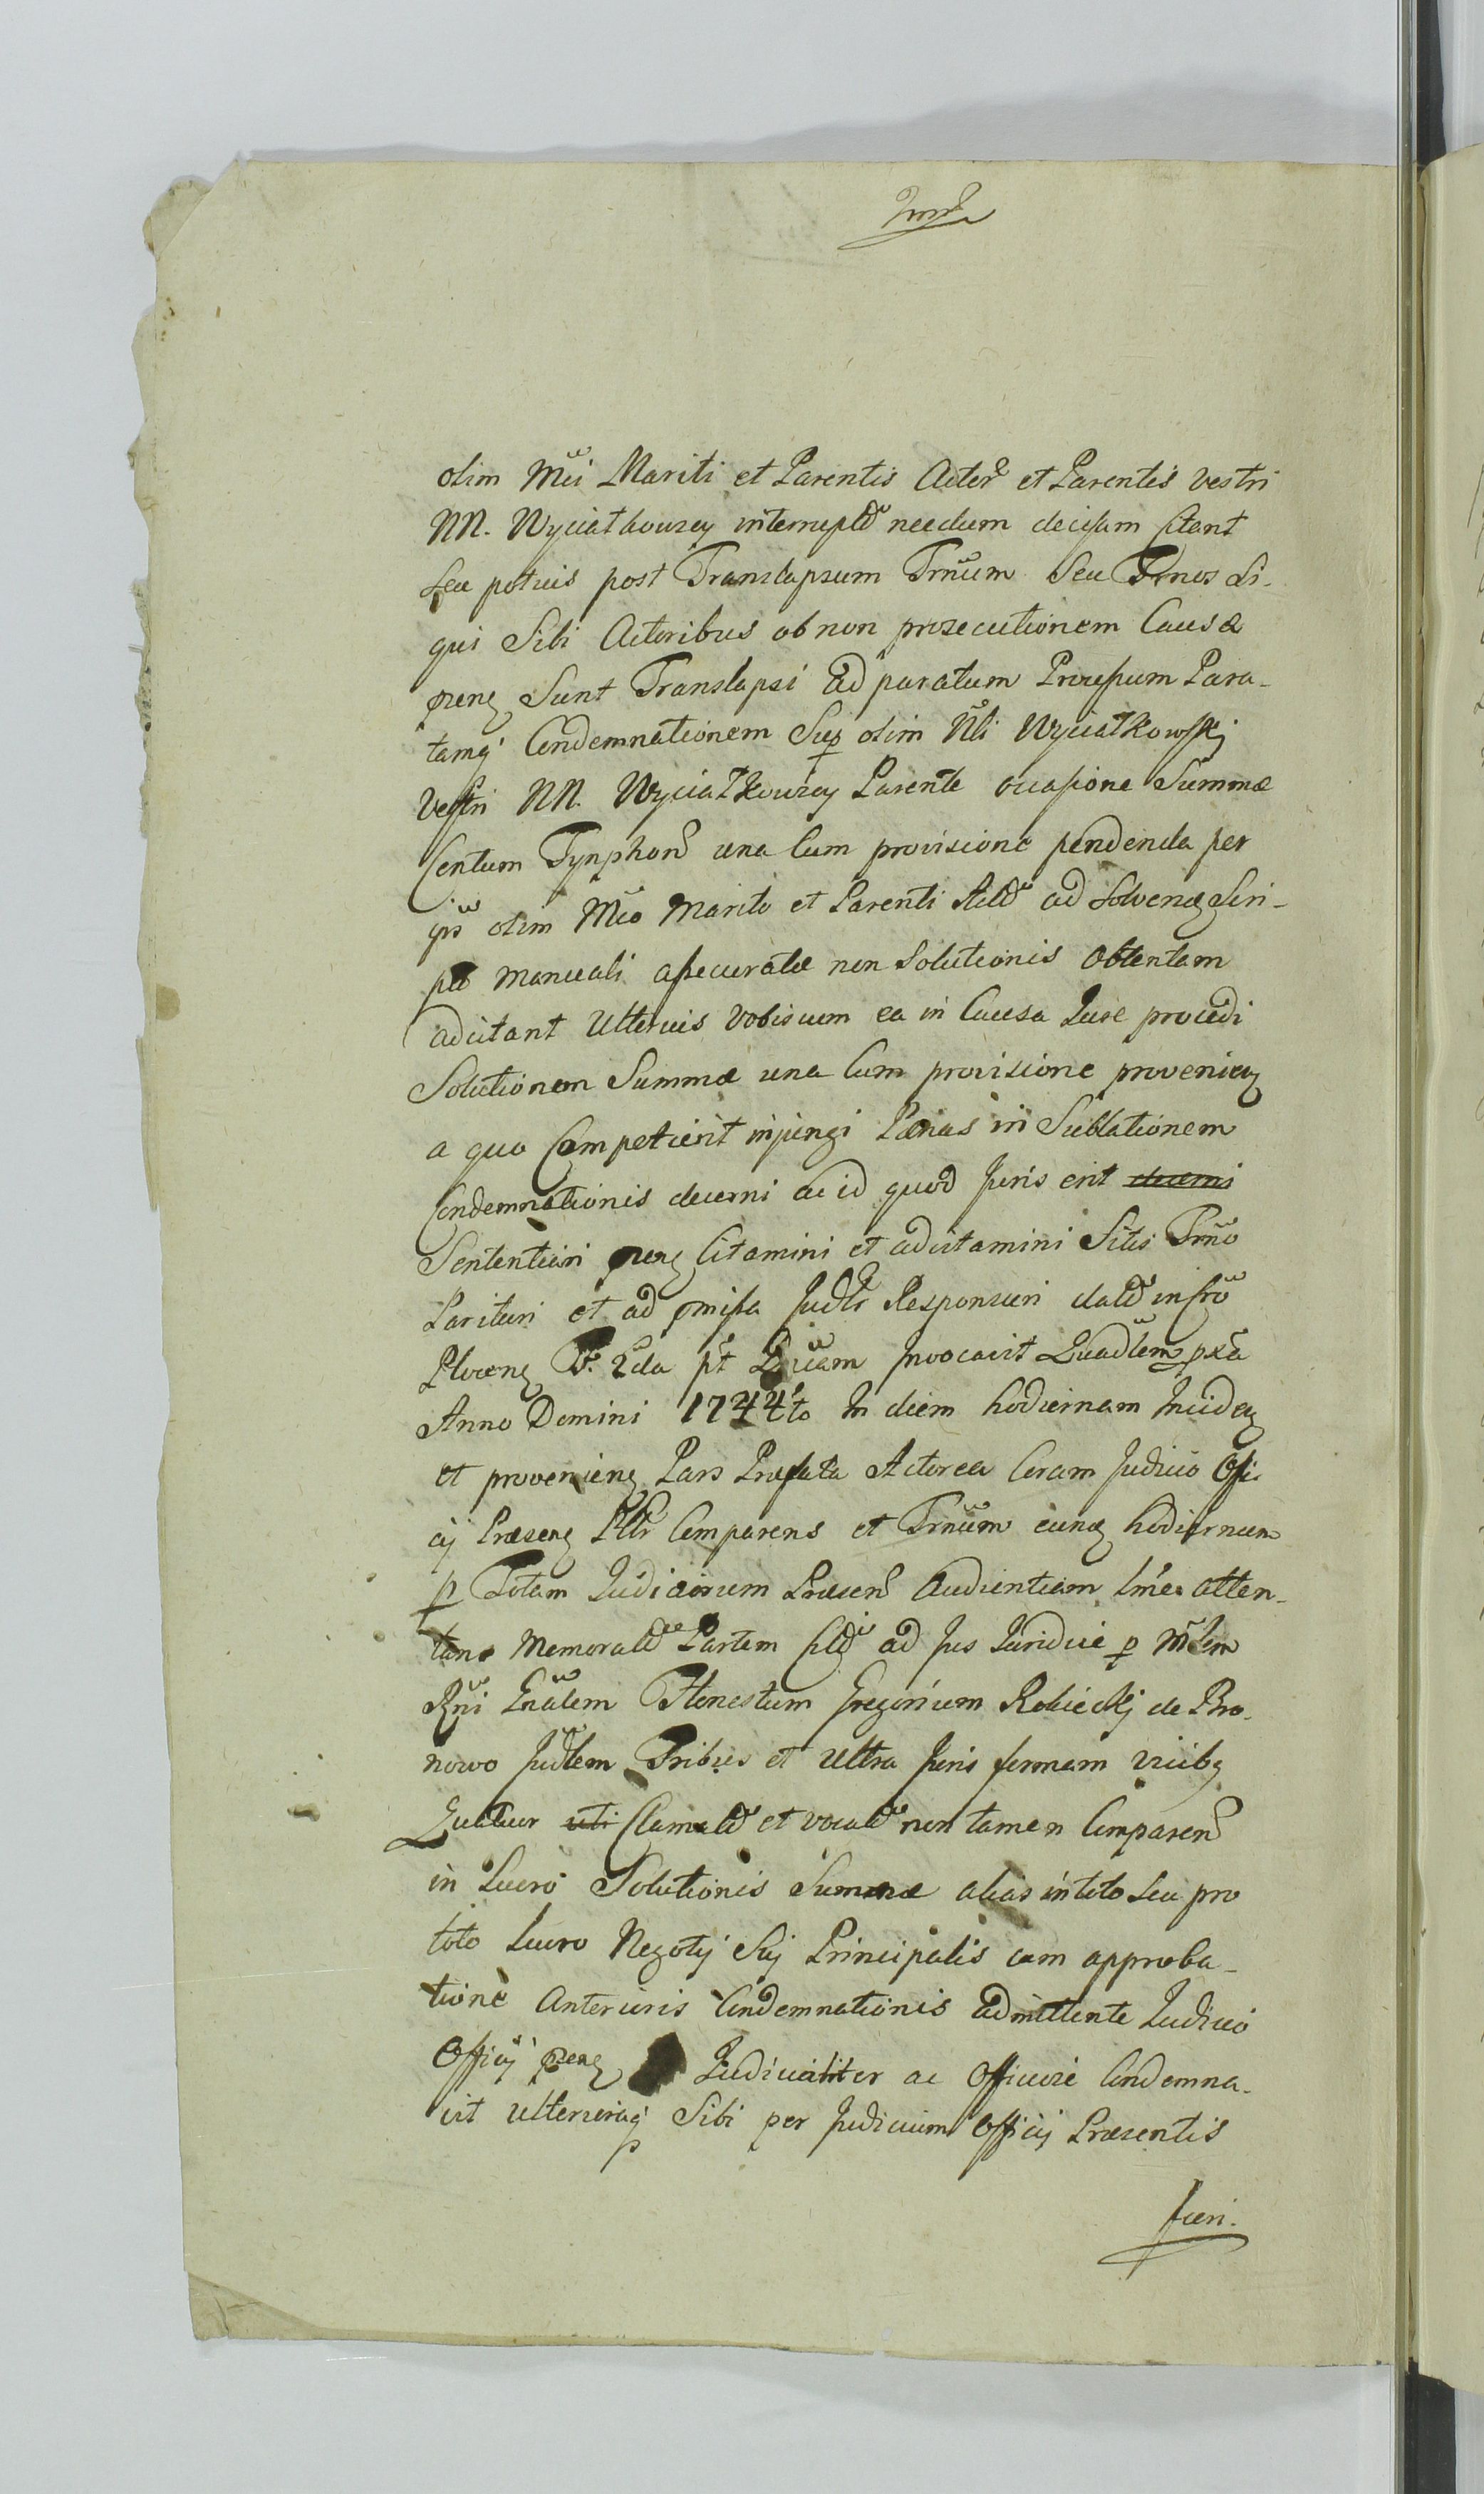 olim Mci Mariti et Parentis Actor et Parentis vestri
NN. Wyciatkowscy interruptã necdum decisam citant
seu potius post Translapsum Trnum seu Trnos si
qui Sibi Actoribus ob non prosecutionem Causæ
præng Sunt Translapsi ad paratum Processum Para-
tamq Condemnationem Sup olim Nli Wyciatkowskj
Vestri NN. Wyciatkowscy Parente occasione Summæ
Centum Tynphon una Cum provisione pendenda per
ips olim Mco Marito et Parenti Actor ad Solveng Scri-
pto manuali assecuratæ non Solutionis Obtentam
adcitant Ulterius Vobiscum ea in Causa Jure procedi
Solutionem Summæ una Cum provisione provenieng
a quo Competierit injungi Pænas in Sublationem
Condemnationis decerni ac id quod Juris erit decerni
Sententiari præng Citamini et adcitamini Sitis Trno
Parituri et ad præmissa Judlr Responsuri dat in Cro
Ploceng F. 2da pt Dnicam Invocavit Quadlem pxa
Anno Domini 1744to In diem hodiernam Incideng
et provenieng Pars Præfata Actorea Coram Judicio Offi-
cij Præseng Pltr Comparens et Trnum eung hodiernum
p Totam Judiciorum Præsen Audientiam Lme atten-
tans Memorat Partem Cit ad Jus Juridice p Mtlem
Rni Gnalem Honestum Gregorium Robieckj de Bro-
nowo Judlem Tribus et Ultra Juris formam vicibg
Quatuor uti Clamat et vocat non tamen Comparen
in Lucro Solutionis Summæ alias in toto seu pro
toto Lucro Negotij Sui Principalis cum approba-
tione Anterioris Condemnationis admittente Judicio
Officij præng Judicialiter ac Officiose Condemna-
vit ulteriusq Sibi per Judicium Officij Præsentis